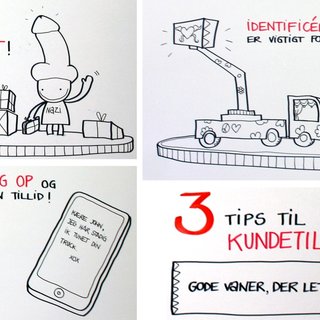 T!
NAZI
IDENTIFICÉR
ER VIGTIGT FO
G OP OG
N TILLID!
KÆRE JOHN,
JEG HAR STADIG
IK TUNET DIN
TRUCK
XOX
3 TIPS TIL
KUNDETIL
GODE VANER, DER LET